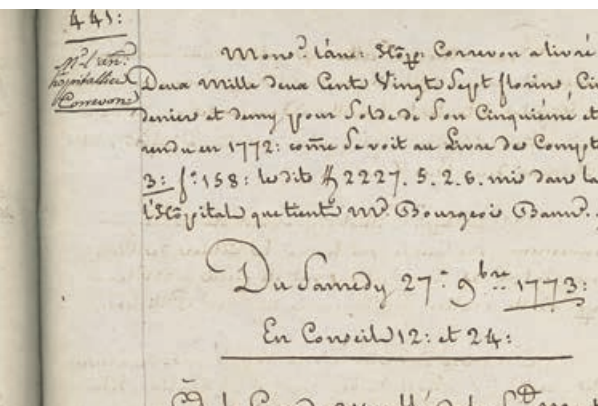 441:
Mr l'an:
hospitallier
Correvon
Monsr. l'anc: Hôp: Correvon a livré
Deux Mille deux Cent Vingt Sept florins, Ci
denier et demy pour Solde de Son Cinquième et
rendu en 1772: come Se voit au Livre des Compt
3: f: 158: lesdits ff 2227. 5. 2. 6. mis dans la
l'Hôpital que tient Mr. Bourgeois Bann.
Du Samedy 27: 9bre 1773:
En Conseils 12: et 24: